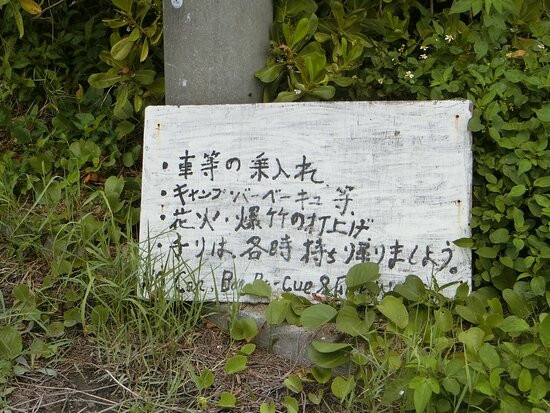 ・車等の乗入れ
・キャンプ・バーベーキュ等
・花火・爆竹の打上げ
・チリは、各時持ちり帰りましょう。
Bar Be-Cue &